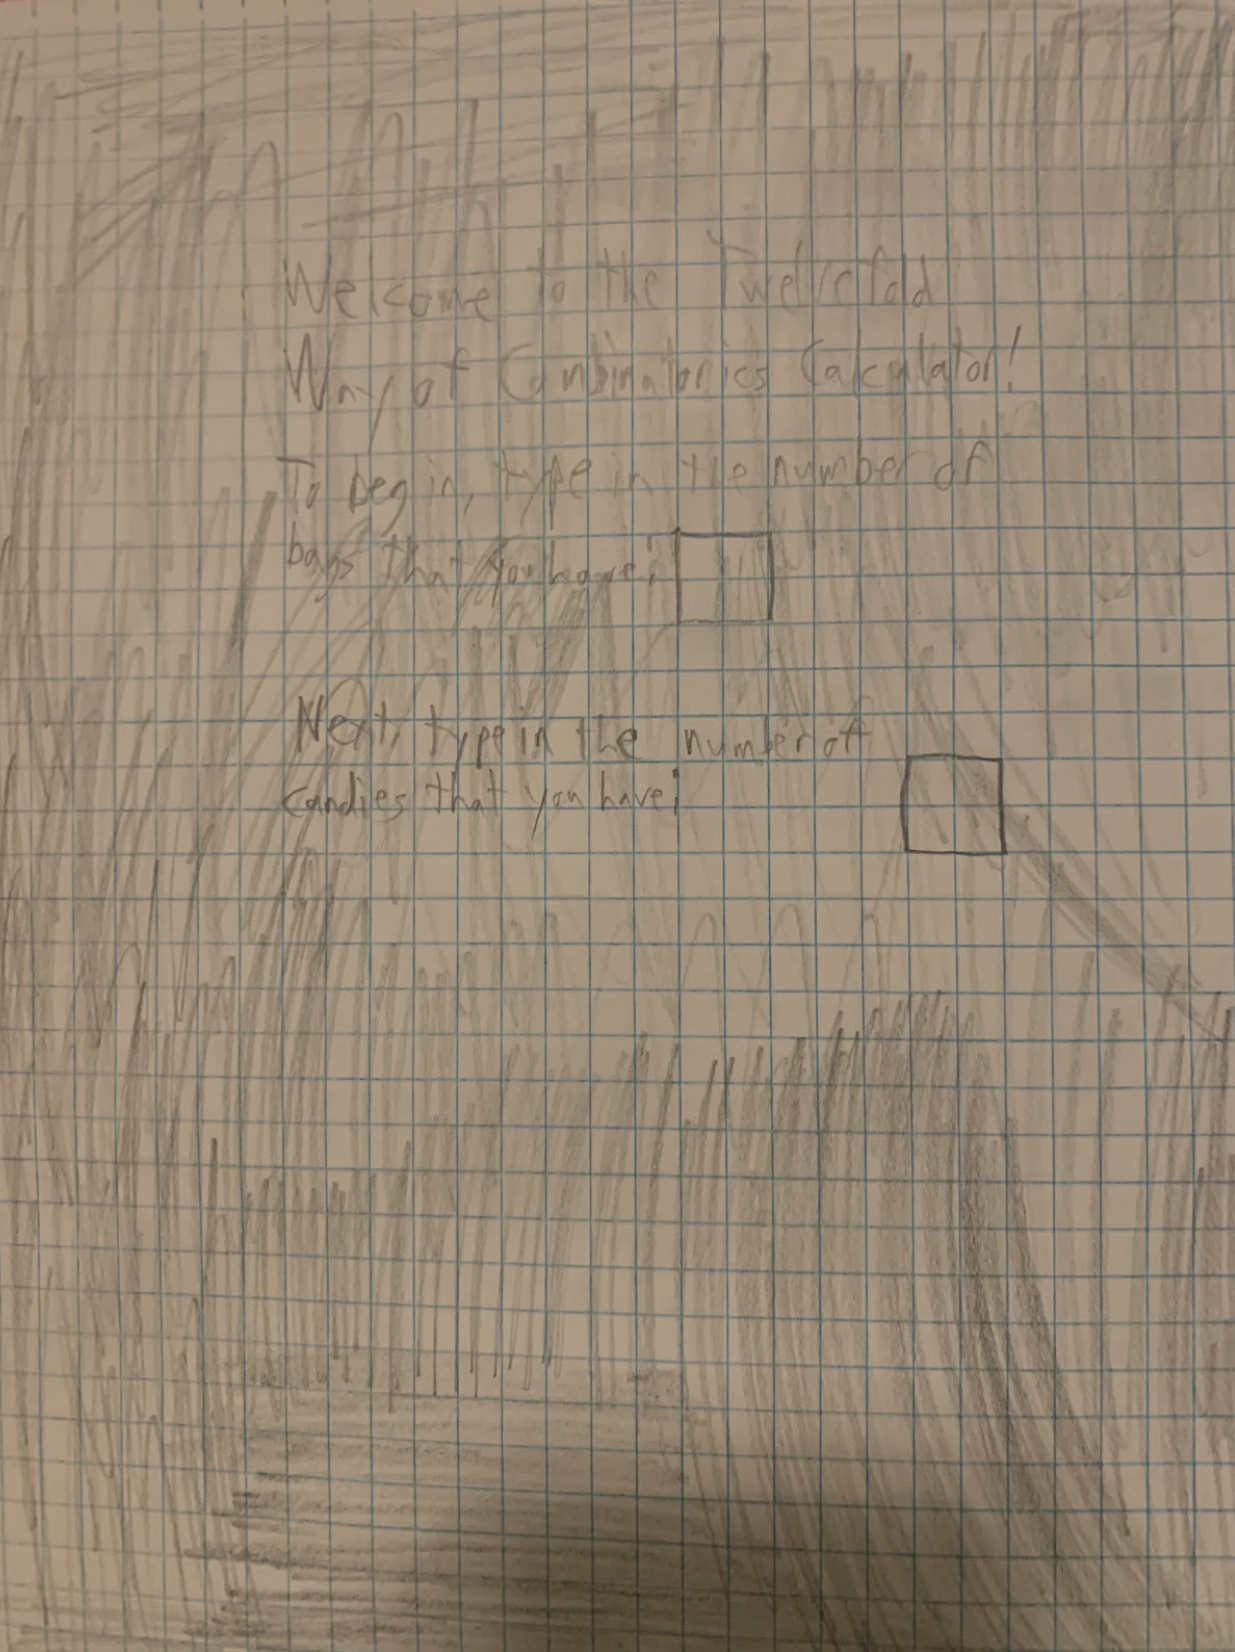 Welcome to the Twelvefold
Way of Combinatorics Calculator!
To begin, type in the number of
bags that you have:
Next, type in the number of
candies that you have: